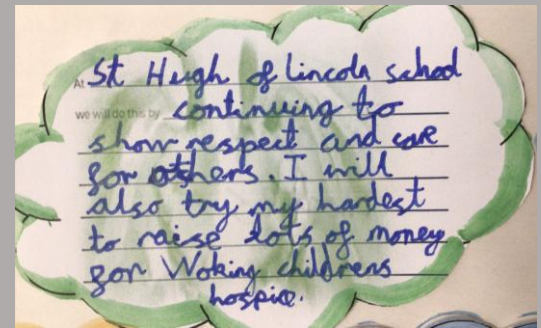 At St Hugh of Lincoln school
we will do this by continuing to
show respect and care
for others. I will
also try my hardest
to raise lots of money
for Woking childrens
hospice.